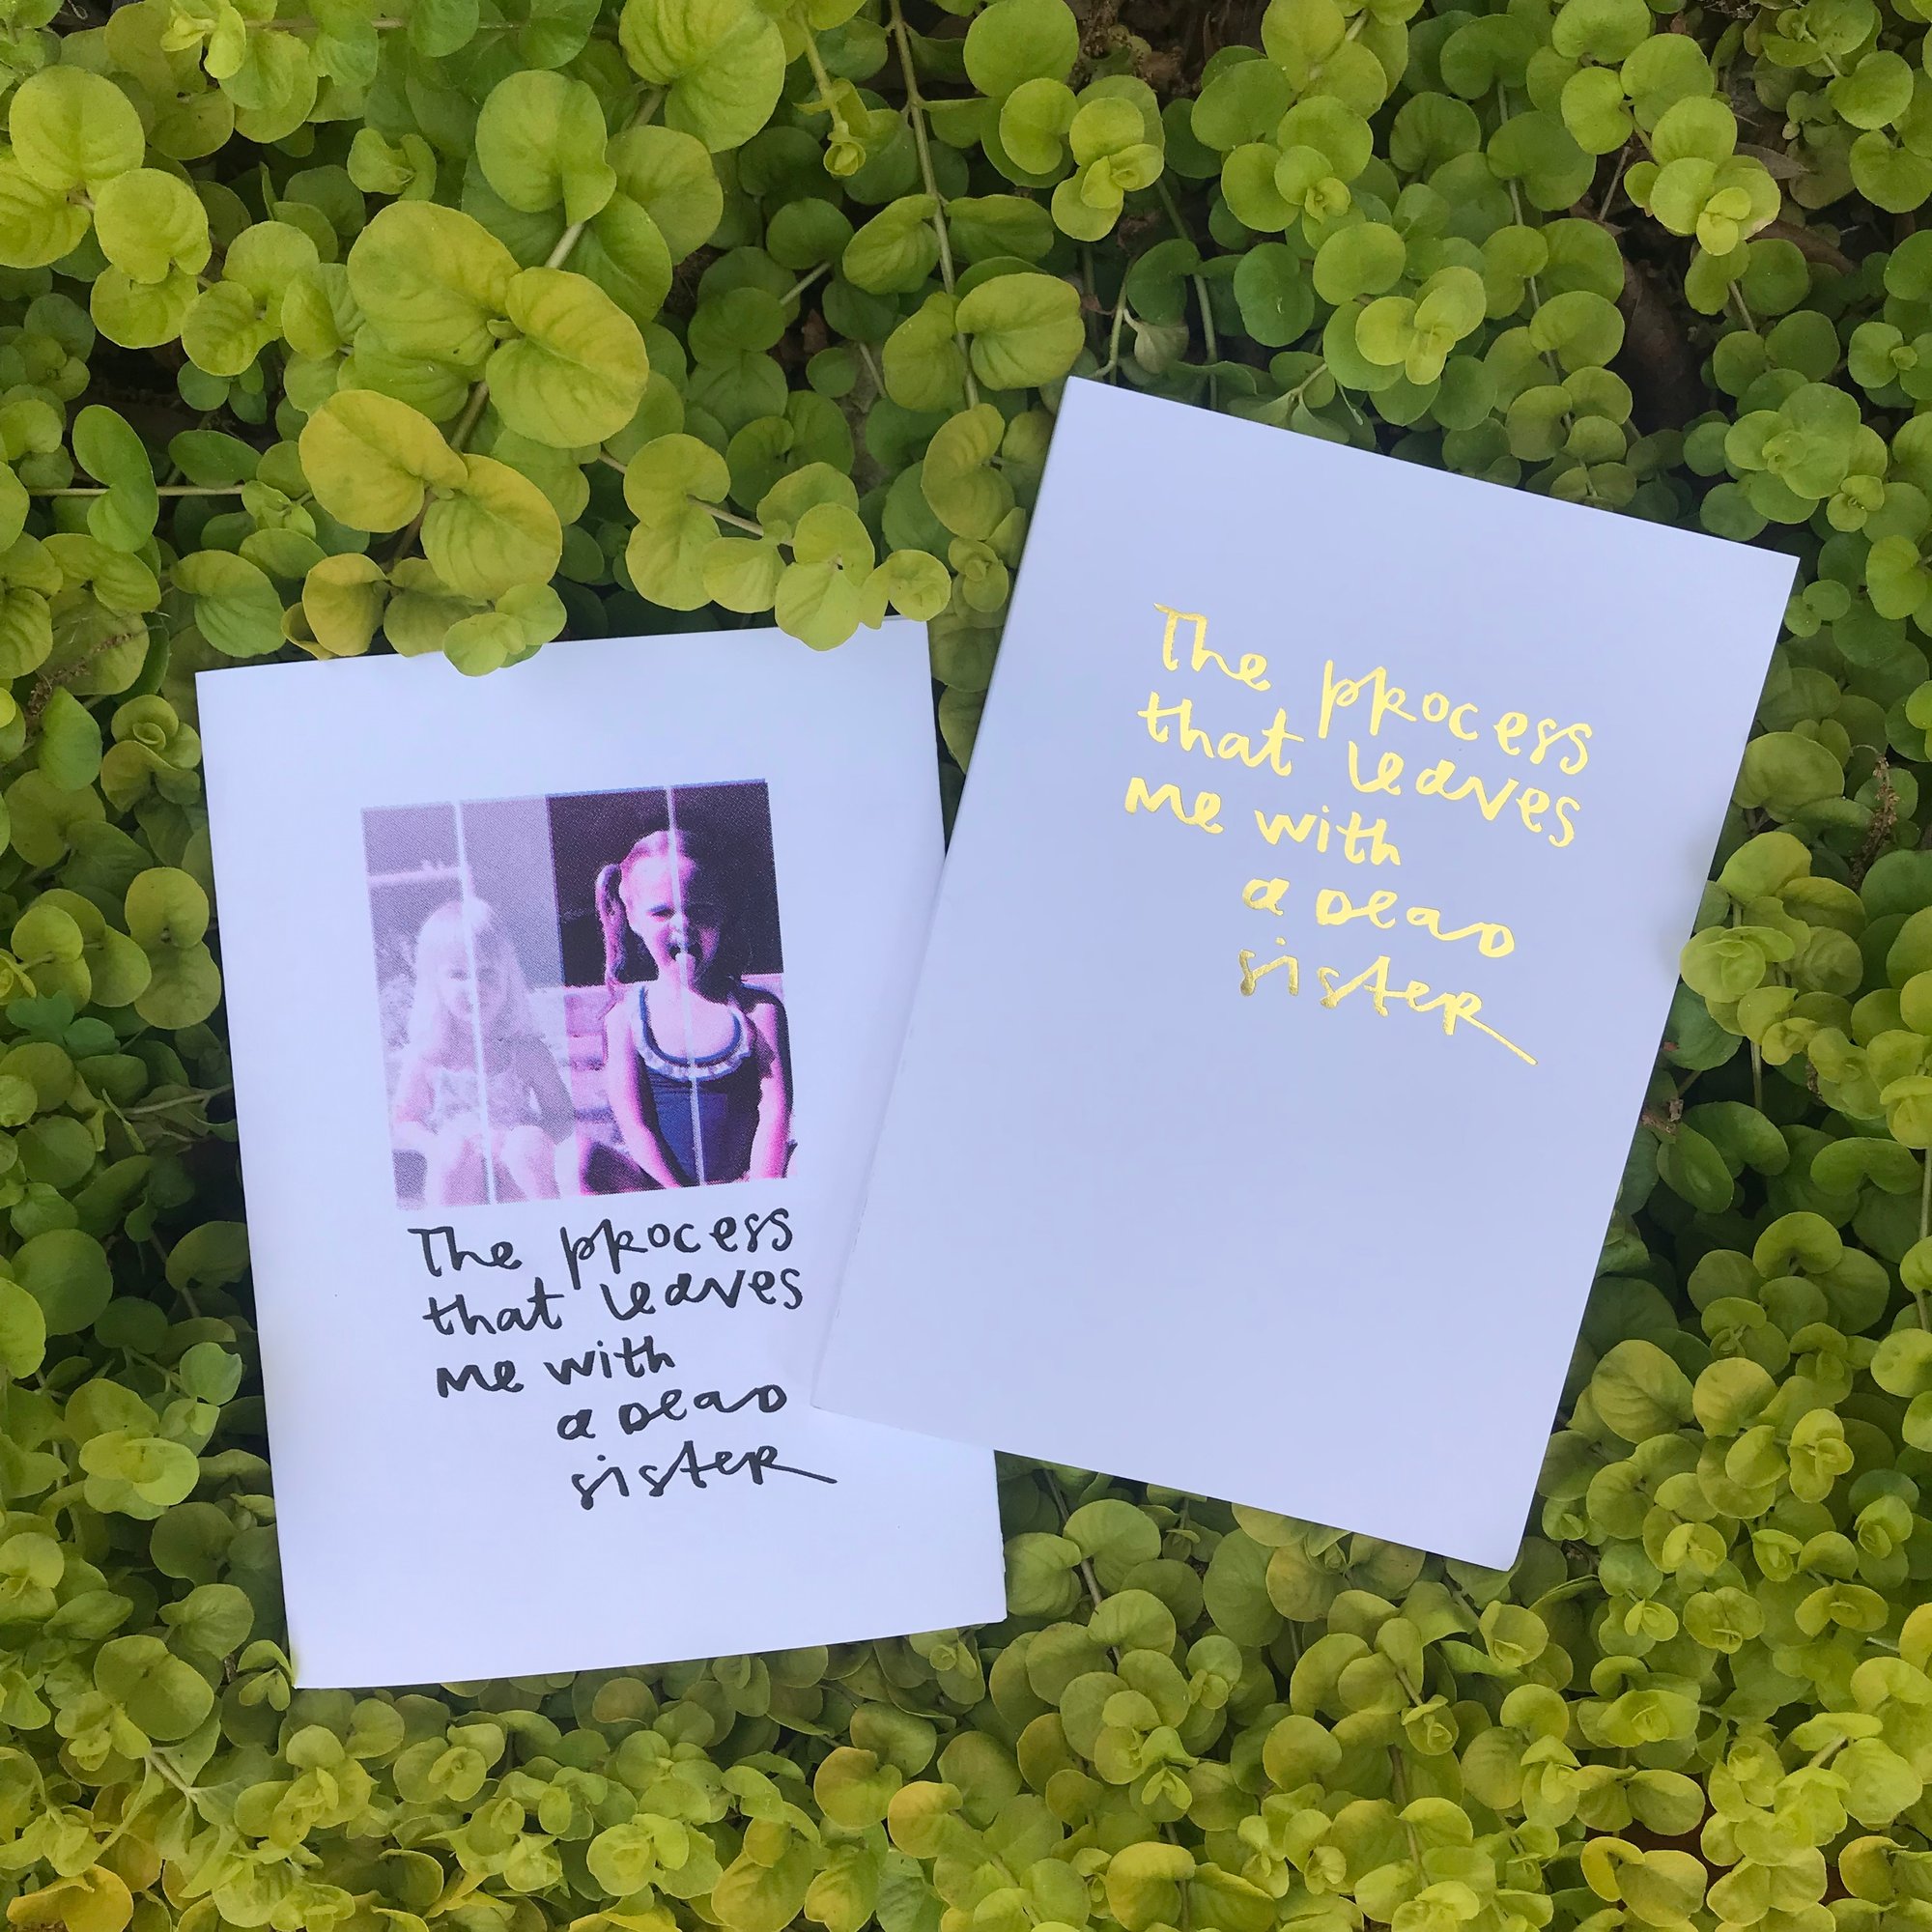 The process
that leaves
me with
a Dead
sister
The process
that leaves
me with
a Dead
sister